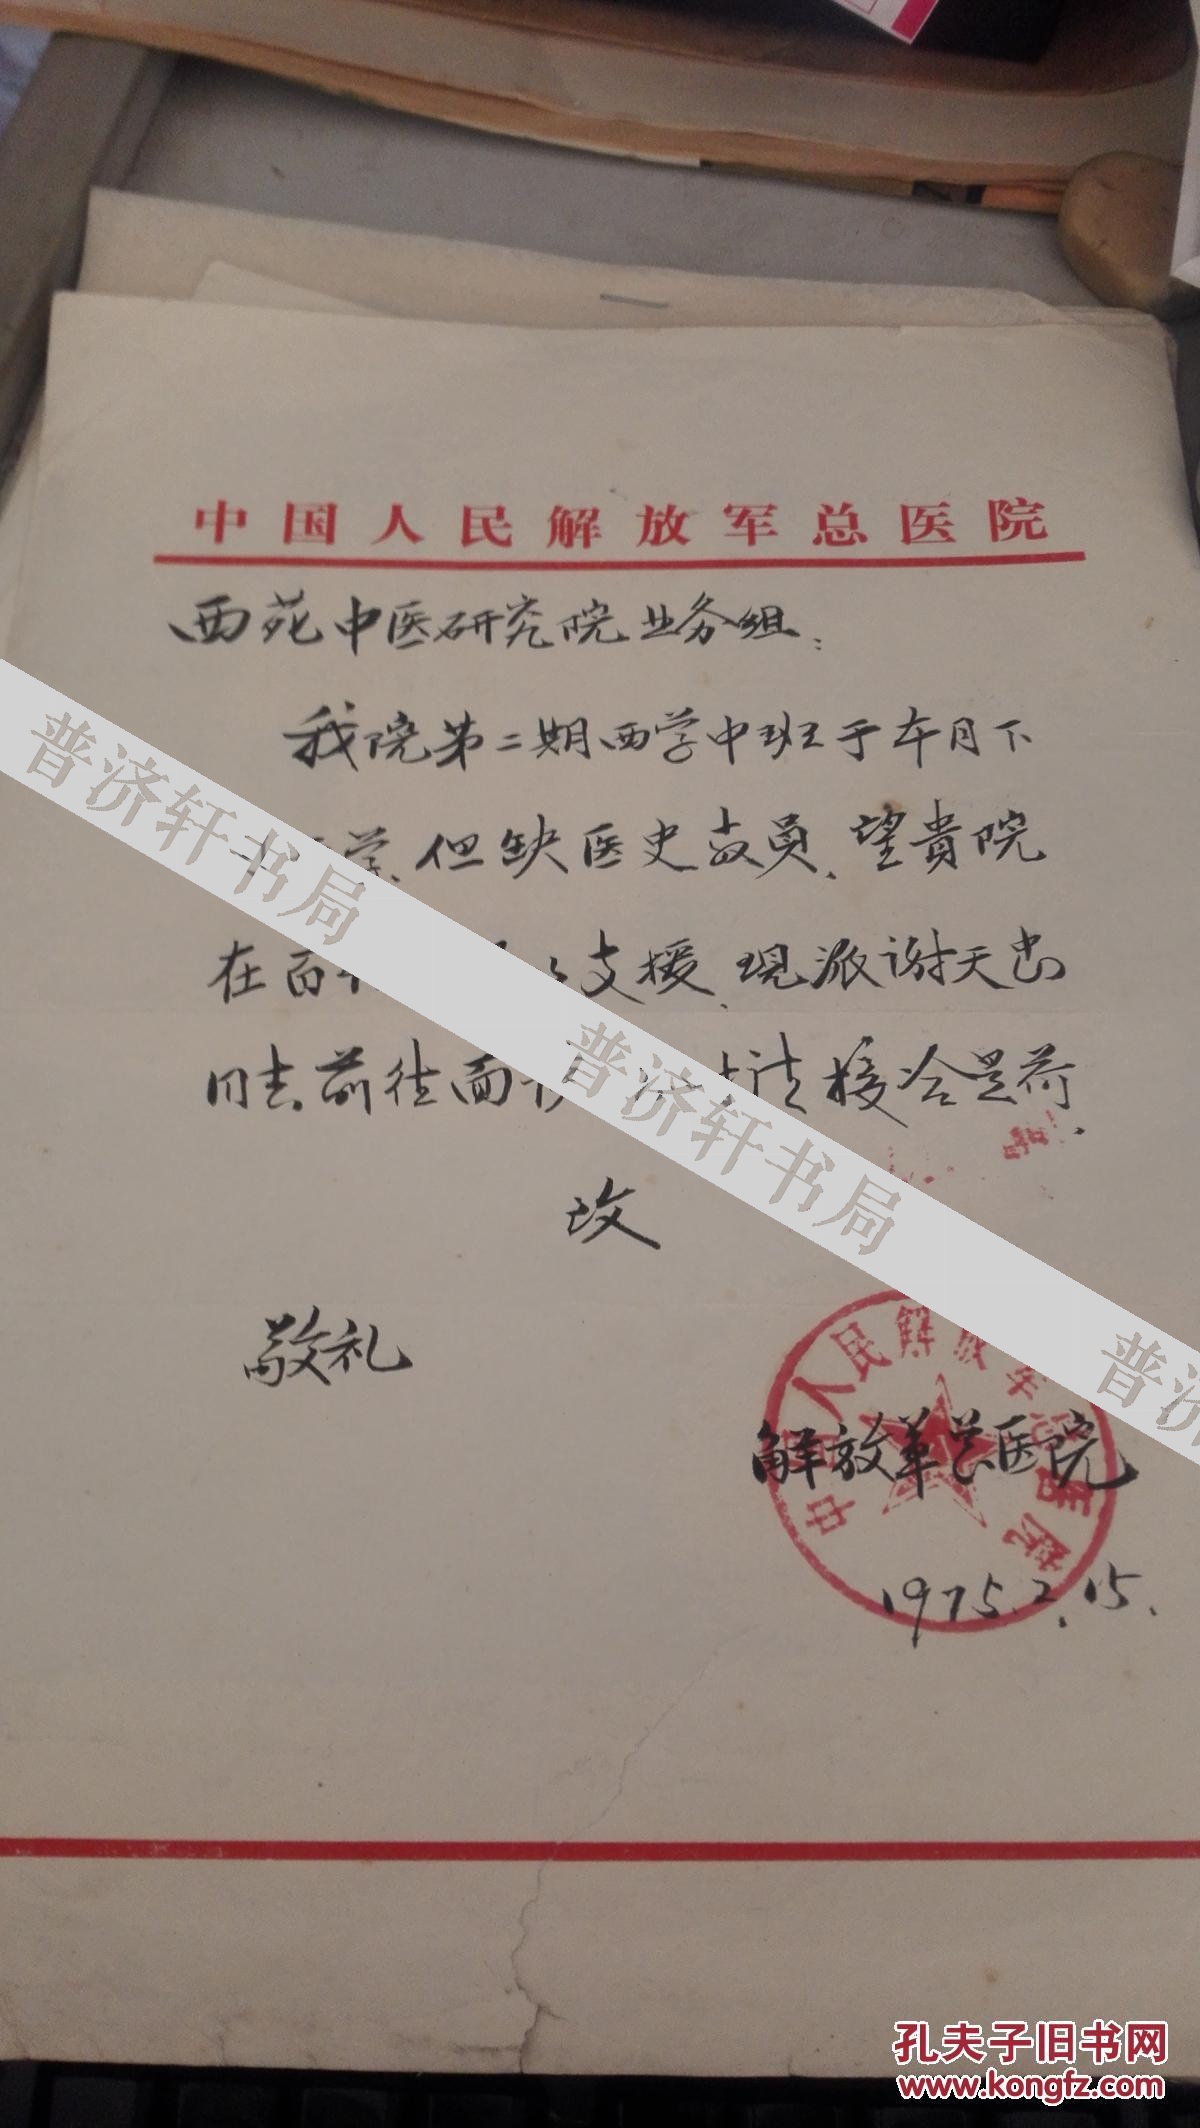 中国人民解放军总医院
西苑中医研究院业务组:
我院第二期西学中班于本月下
学、但缺医史教员、望贵院
在百 支援、现派谢天忠
同志前往面 请接洽是荷、
致
敬礼
中国人民解放军总医院
解放军总医院
1975.2.15.
普济轩书局
普济轩书局
普济
孔夫子旧书网
www.kongfz.com